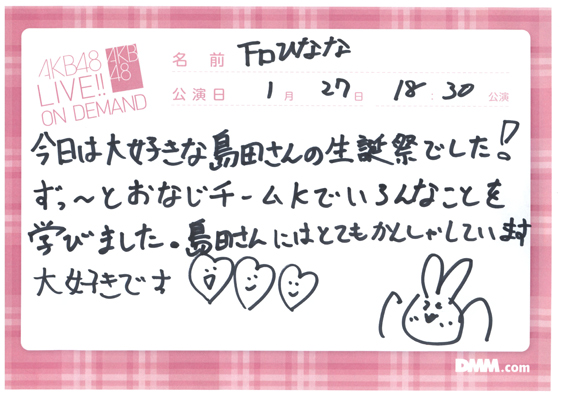 AKB48
LIVE!!
ON DEMAND
AKB
48
名前 下口ひなな
公演日 1月 27日 18:30 公演
今日は大好きな島田さんの生誕祭でした!
ずっ〜とおなじチームKでいろんなことを
学びました。島田さんにはとてもかんしゃしています
大好きです
DMM.com